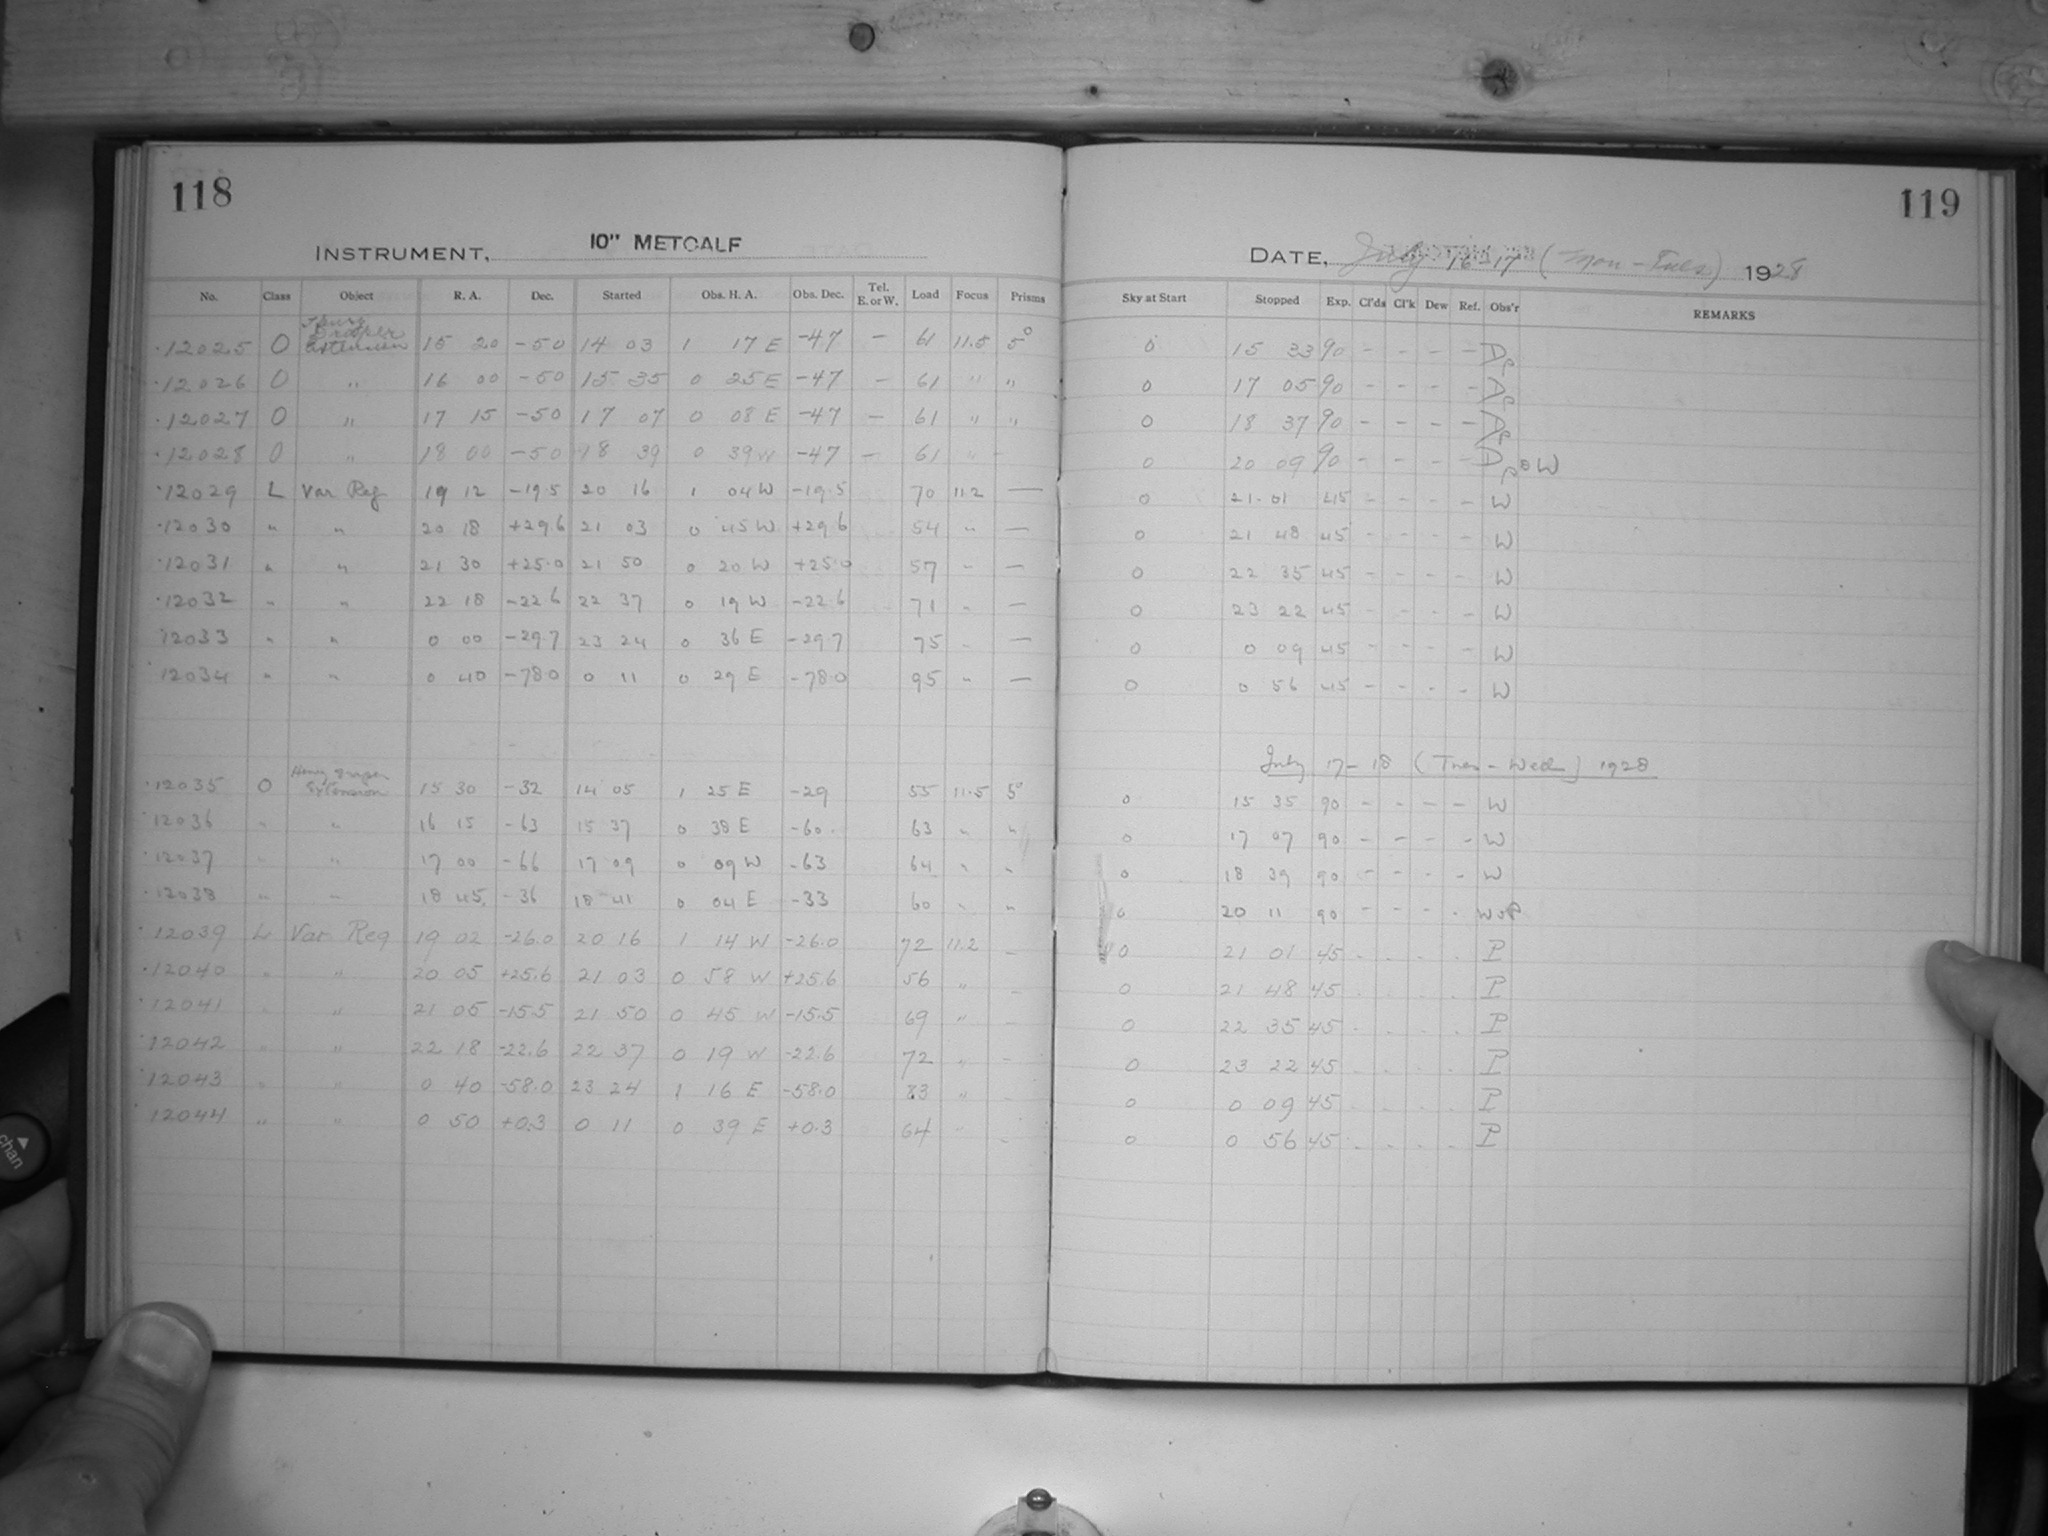 118
INSTRUMENT, 10" METCALF
No. Class Object R. A. Dec. Started Obs. H. A. Obs. Dec. Tel. E. or W. Load Focus Prisms
Draper
12025 O Extension 15 20 -50 14 03 1 17 E -47 - 61 11.5 5°
12026 O " 16 00 -50 15 35 0 25 E -47 - 61 " "
12027 O " 17 15 -50 17 07 0 08 E -47 - 61 " "
12028 O " 18 00 -50 18 39 0 39 W -47 - 61 " -
12029 L Var Reg 19 12 -19.5 20 16 1 04 W -19.5 70 11.2 —
12030 " " 20 18 +29.6 21 03 0 45 W +29.6 54 " —
12031 " " 21 30 +25.0 21 50 0 20 W +25.0 57 - —
12032 " " 22 18 -22.6 22 37 0 19 W -22.6 71 - —
12033 " " 0 00 -29.7 23 24 0 36 E -29.7 75 - —
12034 " " 0 40 -78.0 0 11 0 29 E -78.0 95 " —
Henry Draper
12035 O Extension 15 30 -32 14 05 1 25 E -29 55 11.5 5°
12036 " " 16 15 -63 15 37 0 38 E -60 63 " "
12037 " " 17 00 -66 17 09 0 09 W -63 64 " "
12038 " " 18 45 -36 18 41 0 04 E -33 60 " "
12039 L Var Reg 19 02 -26.0 20 16 1 14 W -26.0 72 11.2 -
12040 " " 20 05 +25.6 21 03 0 58 W +25.6 56 " -
12041 " " 21 05 -15.5 21 50 0 45 W -15.5 69 " -
12042 " " 22 18 -22.6 22 37 0 19 W -22.6 72 " -
12043 " " 0 40 -58.0 23 24 1 16 E -58.0 83 " -
12044 " " 0 50 +0.3 0 11 0 39 E +0.3 64 " -
119
DATE, July 16-17 (Mon-Tues) 1928
Sky at Start Stopped Exp. Cl'ds Cl'k Dew Ref. Obs'r REMARKS
0 15 33 90 - - - -
0 17 05 90 - - - -
0 18 37 90 - - - -
0 20 09 90 - - - - W
0 21 01 45 - - - - W
0 21 48 45 - - - - W
0 22 35 45 - - - - W
0 23 22 45 - - - - W
0 0 09 45 - - - - W
0 0 56 45 - - - - W
July 17-18 (Tues-Wed) 1928
0 15 35 90 - - - - W
0 17 07 90 - - - - W
0 18 39 90 - - - - W
0 20 11 90 - - - - W P
0 21 01 45 - - - - P
0 21 48 45 - - - - P
0 22 35 45 - - - - P
0 23 22 45 - - - - P
0 0 09 45 - - - - P
0 0 56 45 - - - - P
chan